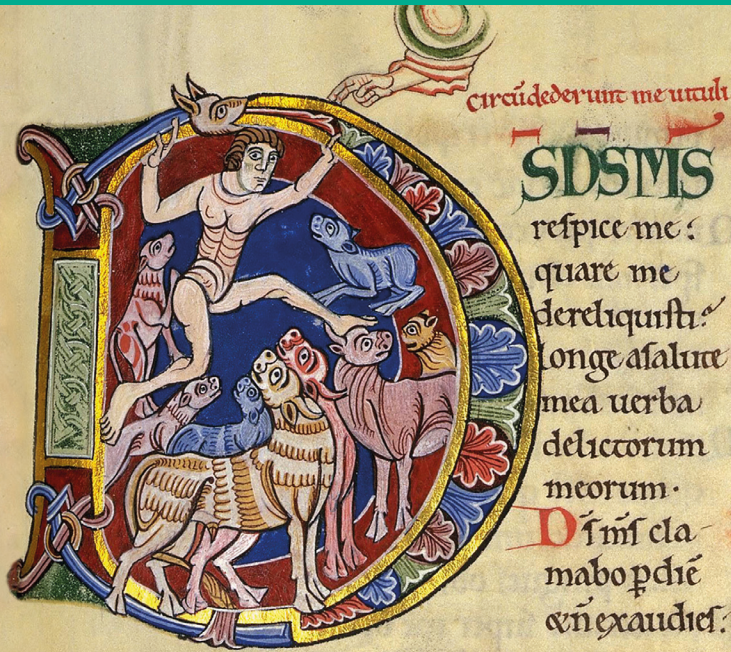 Circūdederunt me uituli
DSDSMS
respice me:
quare me
dereliquisti?
longe asalute
mea uerba
delictorum
meorum·
D̄s m̄s cla-
mabo p diē
& n̄ exaudies: